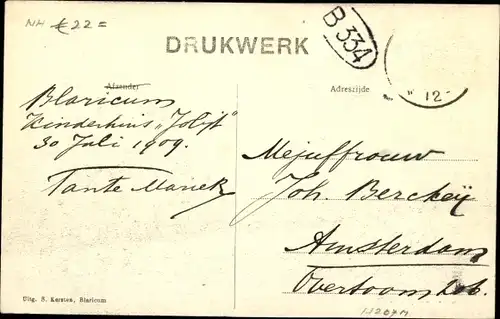 NH € 22 =
DRUKWERK
B 334
" 12 -
Afzender
Adreszijde
Blaricum
Kinderhuis "Jolijt"
30 Juli 1909.
Tante
Mejuffrouw
Joh. Berckeÿ
Amsterdam
Overtoom
Uitg. S. Kersten, Blaricum